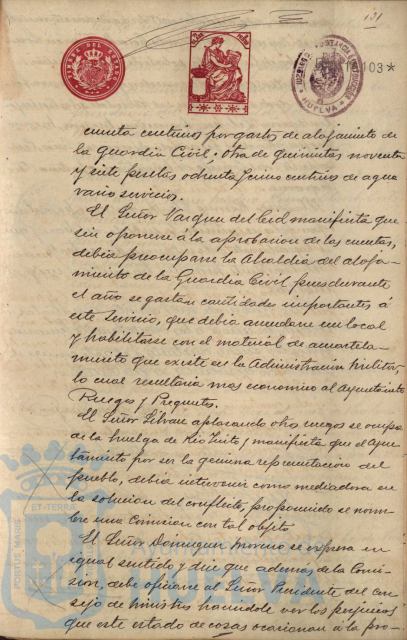 131
103*
HUELVA
cuenta centimos por gastos de alojamiento de
la guardia Civil; otra de quinientas noventa
y siete pesetas ochenta y cinco centimos de agua
vario servicios.
El Señor Vazquez del Cid manifiesta que
sin oponerse á la aprobacion de las cuentas,
debia preocuparse la Alcaldia del aloja-
miento de la Guardia Civil pues durante
el año se gastan cantidades importantes á
este servicio, que debia arrendarse un local
y habilitarse con el material de acuartela-
miento que existe en la Administracion militar,
lo cual resultaria mas economico al Ayuntamiento
Ruegos y Preguntas.
El Señor aplazando otros ruegos se ocupa
de la huelga de Rio Tinto y manifiesta que el Ayun-
tamiento por ser la genuina representacion del
pueblo, debia intervenir como mediadora en
la solucion del conflicto, proponiendo se nom-
bre una Comision con tal objeto.
El Señor Dominguez Moreno se expresa en
igual sentido y dice que ademas de la Comi-
sion, debe oficiarse al Señor Presidente del Con-
sejo de Ministros haciendole ver los perjuicios
que este estado de cosas ocasionan á la pro-